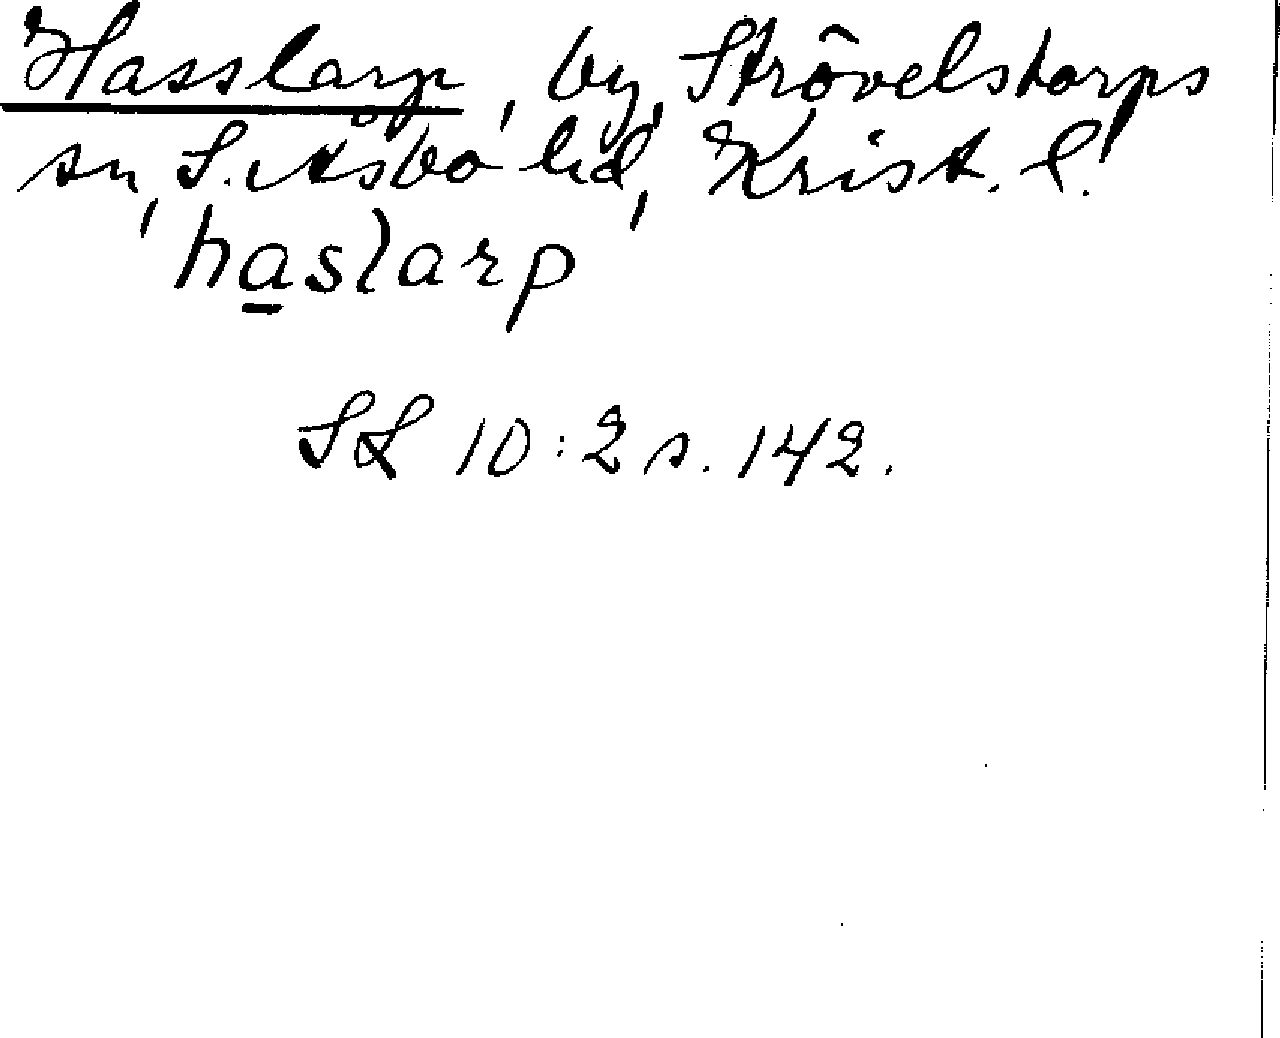 Hasslarp, by, Strövelstorps
sn, S. Åsbo hd, Krist. l.
haslarp
SL 10:2 s. 142.